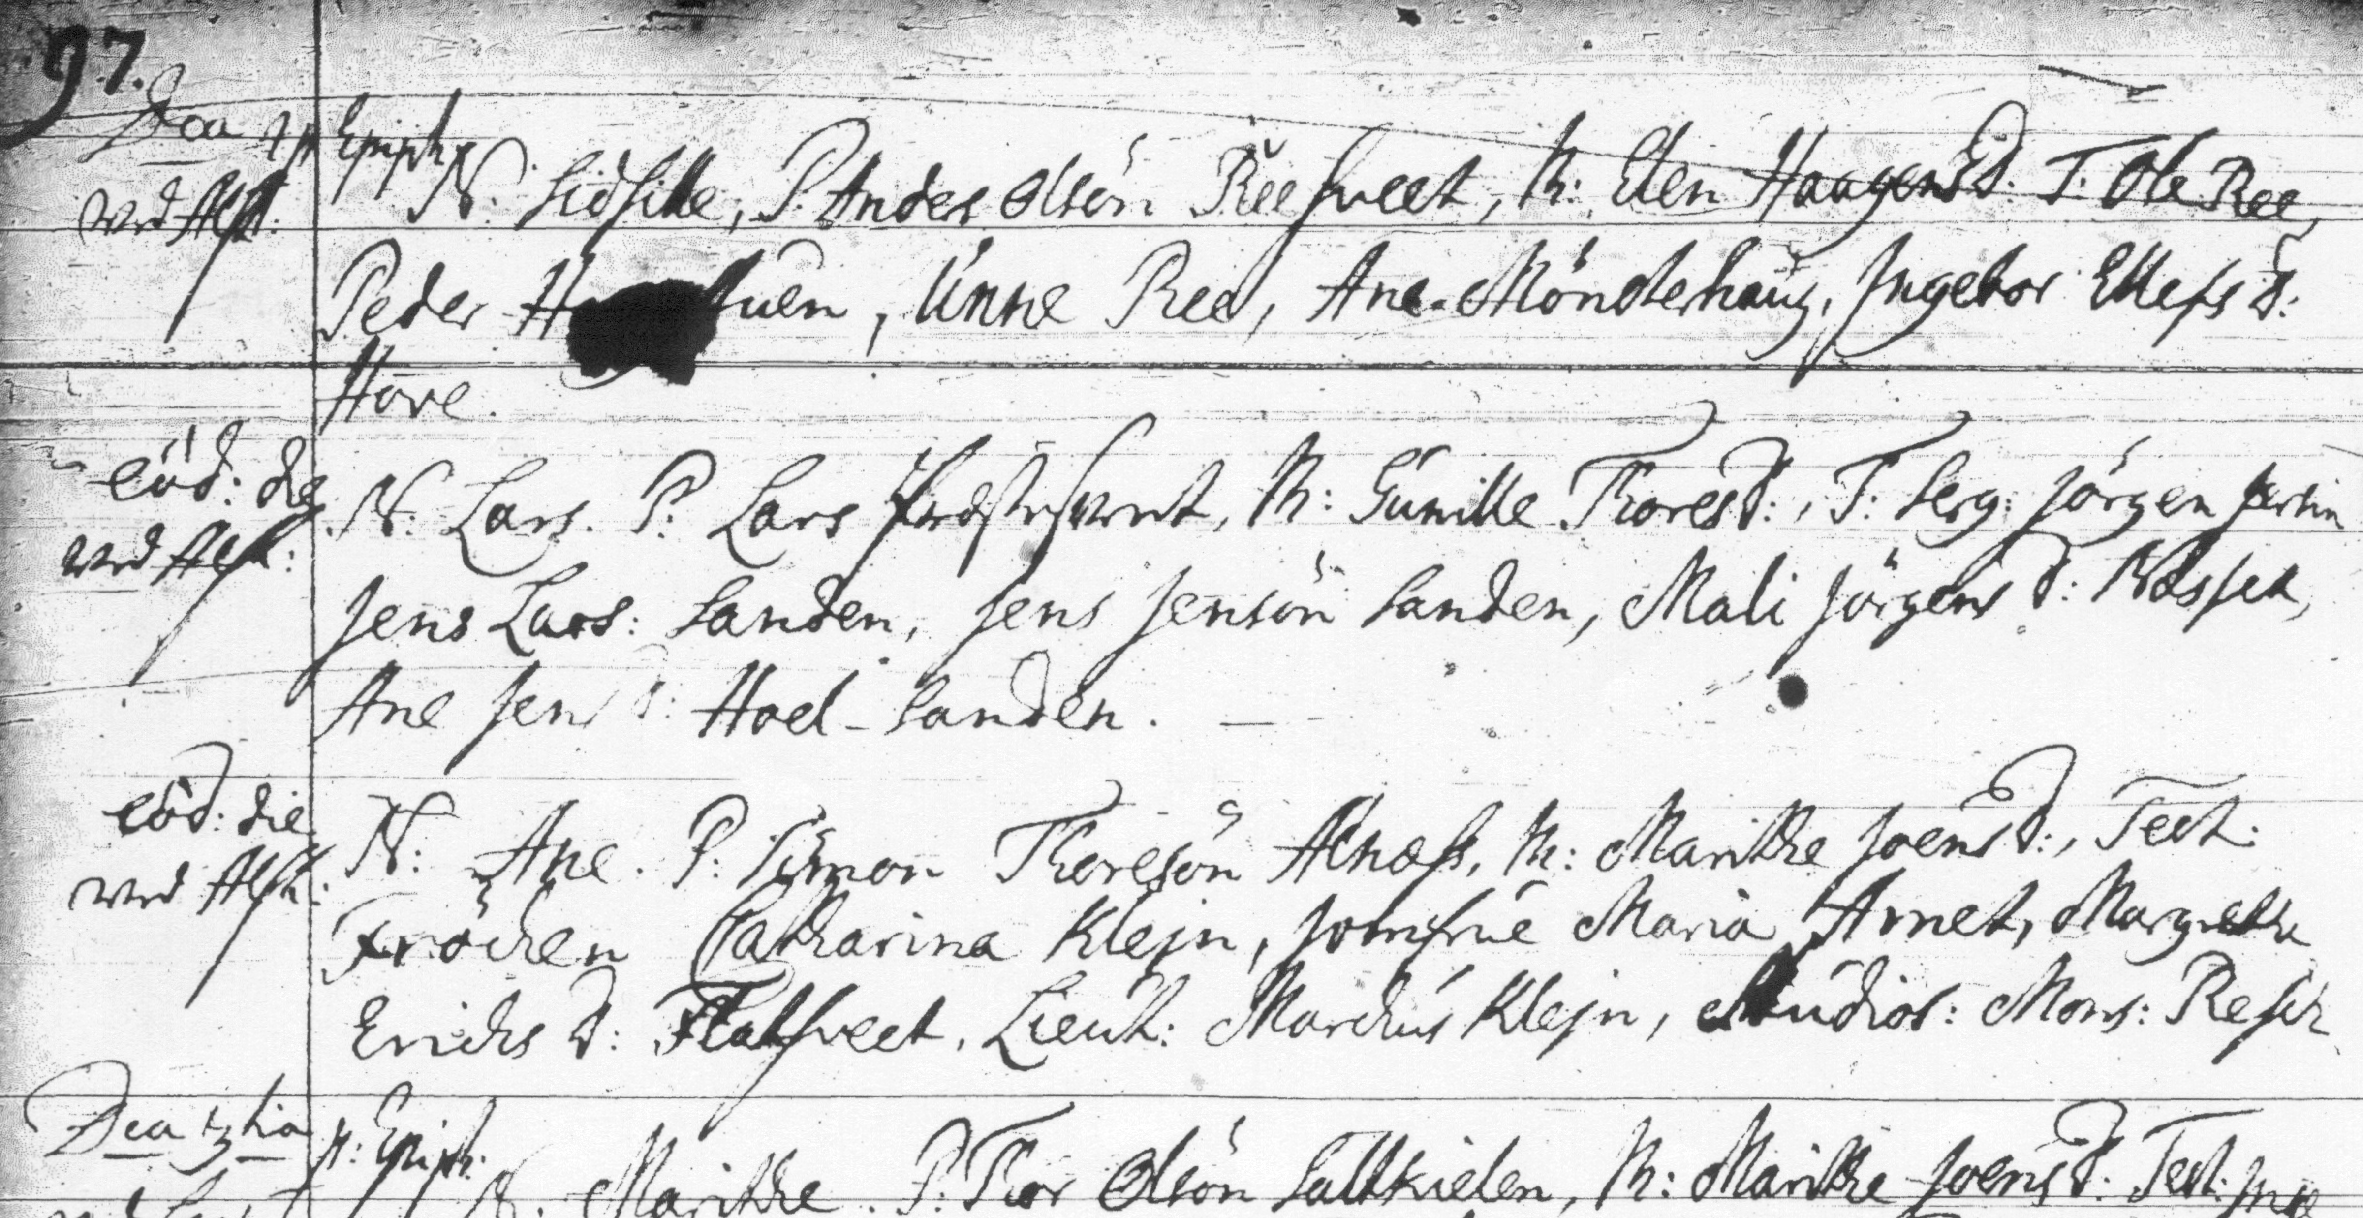 97.
Dca 2 p Epiph:
ved Alst:
N: Sidselle, P. Anders Olsön Reesveet, M: Elen Haagens D: T: Ole Ree,
Peder Unne Ree, Ane Mönderhaug, Ingebor Ellefs D:
Hove.
eöd: die
ved Alst:
N: Lars. P: Lars M: Gunille Thores D:, T: Serg: Jörgen
Jens Lars: Sanden, Jens Jensön Sanden, Mali Jörgens D:
Ane Jens D: Hoel-Sanden. —
eöd: die
ved Alst:
N: Ane. P: Simon Thoresön Alnæss, M: Marithe Joens D:, Test:
Fröchen Catharina Klejn, Jomfrue Maria Arnet, Margrethe
Erichs D: Flatsveet, Lieut: Marchus Klejn, Studios: Mons: Resch
Dca 3tia p: Epiph:
N: Marithe. P: Thor Olsön Saltkielen, M: Marithe Joens D: Test: